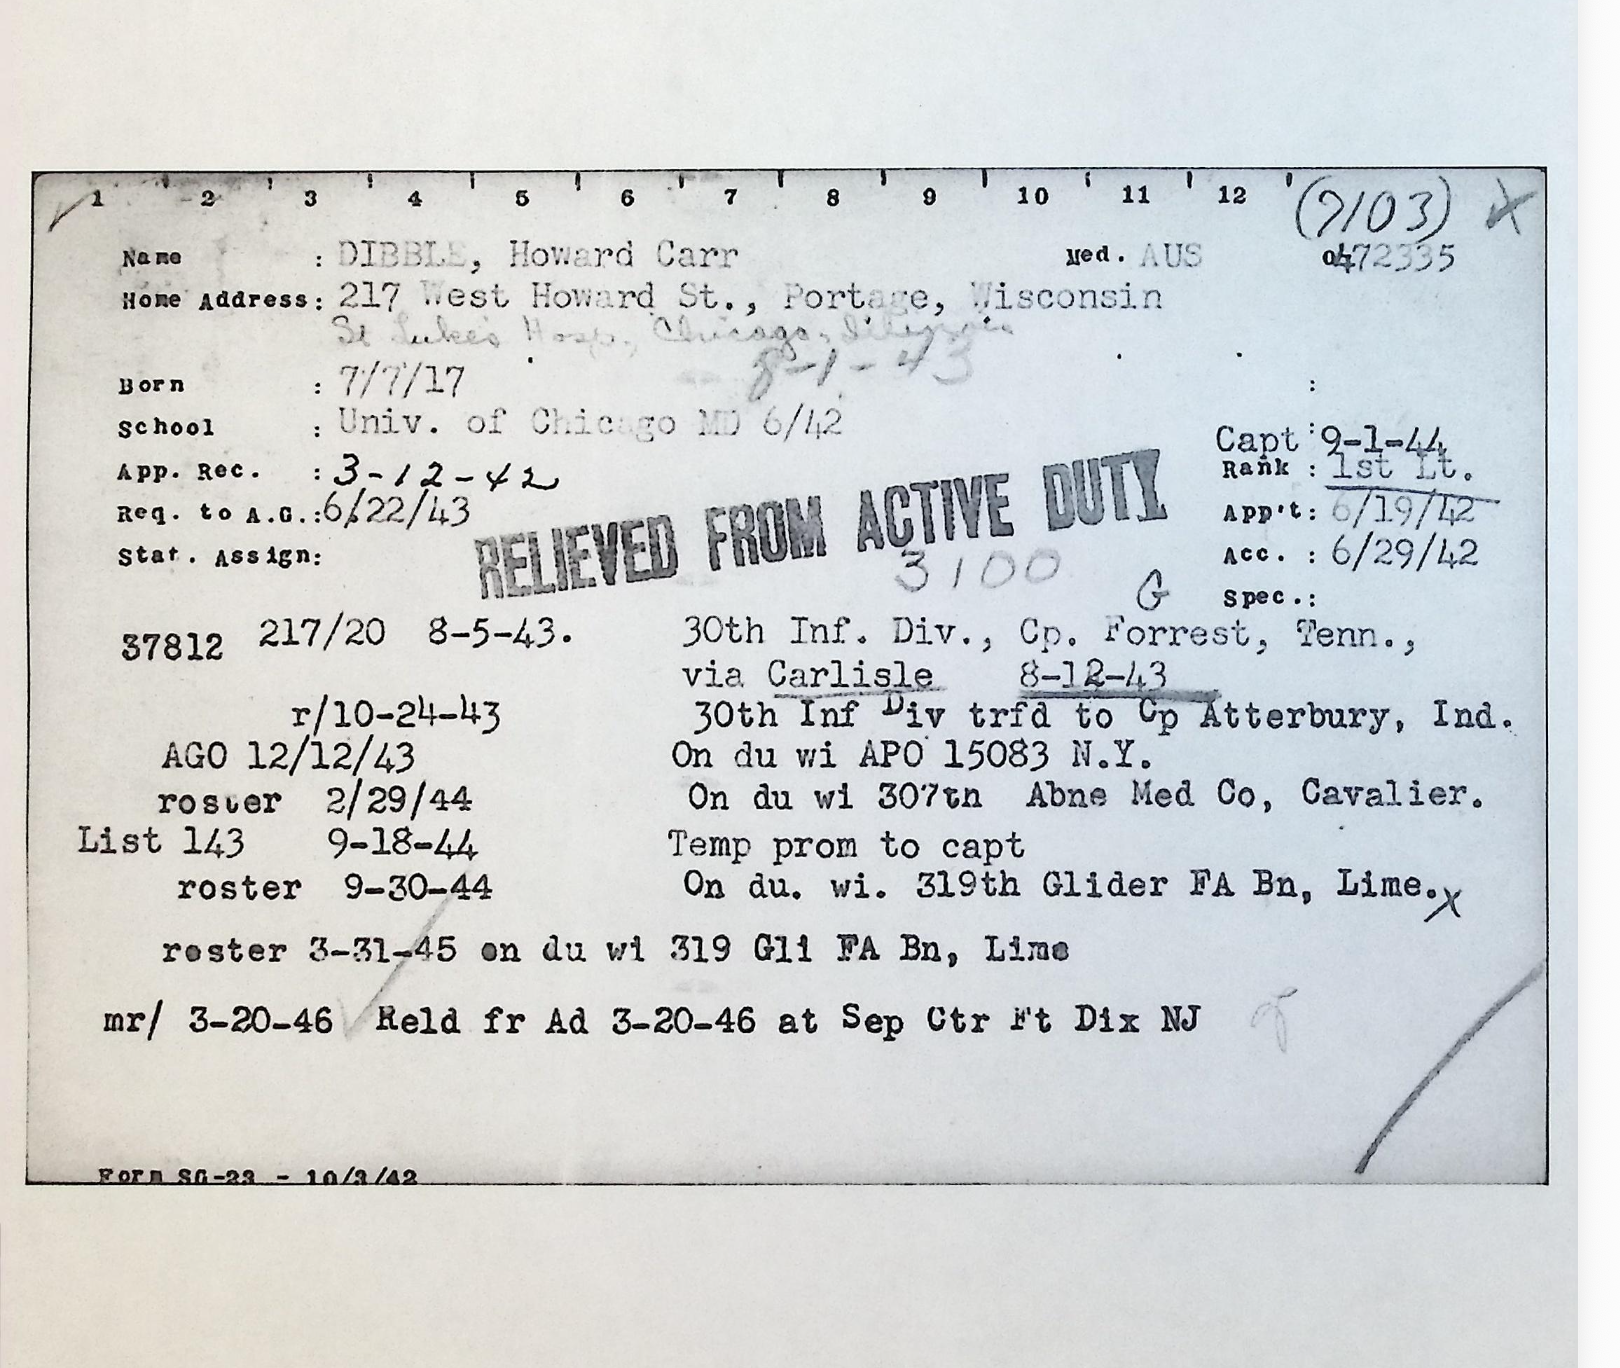 1 2 3 4 5 6 7 8 9 10 11 12 (7103) X
Name : DIBBLE, Howard Carr Med. AUS 0472335
Home Address: 217 West Howard St., Portage, Wisconsin
St Luke's Hosp., Chicago, Illinois
8-1-43
Born : 7/7/17 :
School : Univ. of Chicago MD 6/42 :
Capt 9-1-44
App. Rec. : 3-12-42 Rank : 1st Lt.
Req. to A.G.: 6/22/43 App't: 6/19/42
RELIEVED FROM ACTIVE DUTY
Stat. Assign: 3100 Acc. : 6/29/42
G Spec.:
37812 217/20 8-5-43. 30th Inf. Div., Cp. Forrest, Tenn.,
via Carlisle 8-12-43
r/10-24-43 30th Inf Div trfd to Cp Atterbury, Ind.
AGO 12/12/43 On du wi APO 15083 N.Y.
roster 2/29/44 On du wi 307th Abne Med Co, Cavalier.
List 143 9-18-44 Temp prom to capt
roster 9-30-44 On du. wi. 319th Glider FA Bn, Lime. X
roster 3-31-45 on du wi 319 Gli FA Bn, Lime
mr/ 3-20-46 Reld fr Ad 3-20-46 at Sep Ctr Ft Dix NJ
Form SG-23 - 10/3/42